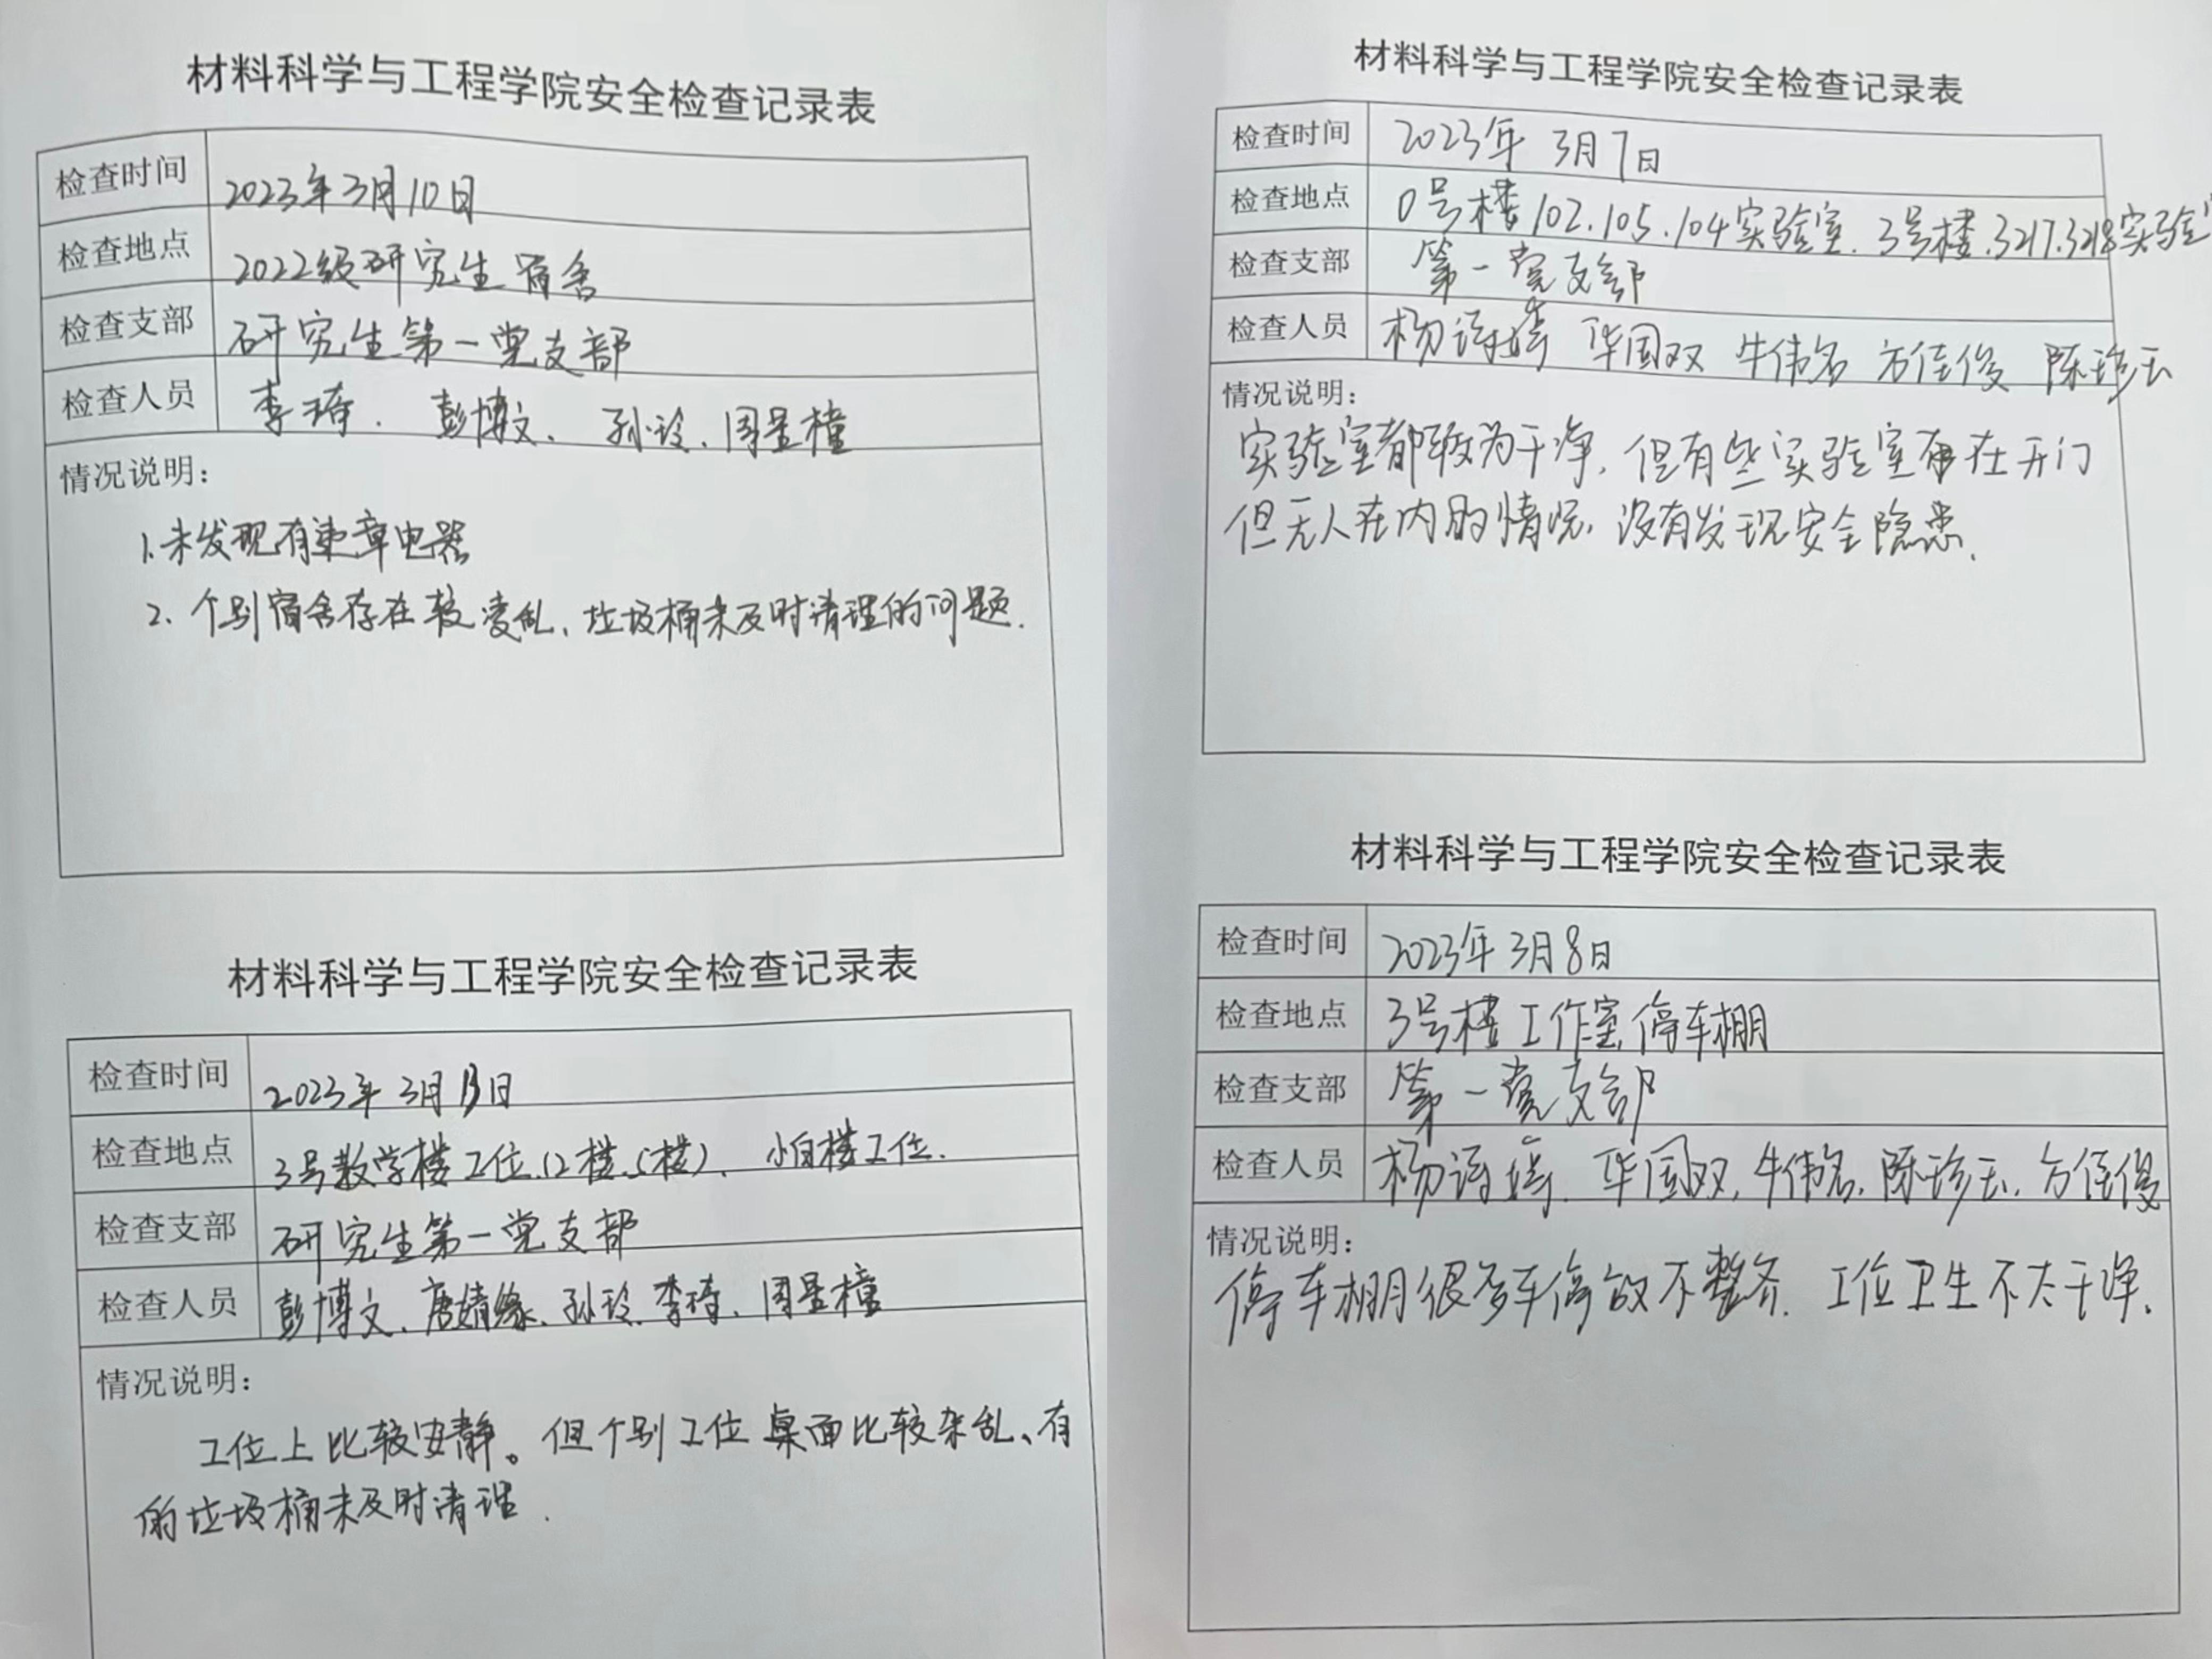 材料科学与工程学院安全检查记录表
检查时间 2023年3月10日
检查地点 2022级研究生宿舍
检查支部 研究生第一党支部
检查人员 李琦、彭博文、孙玲、周星橦
情况说明：
1.未发现有违章电器
2.个别宿舍存在较凌乱、垃圾桶未及时清理的问题.
材料科学与工程学院安全检查记录表
检查时间 2023年3月13日
检查地点 3号教学楼工位(2楼、5楼)、小白楼工位.
检查支部 研究生第一党支部
检查人员 彭博文、唐婧缘、孙玲、李琦、周星橦
情况说明：
工位上比较安静。但个别工位桌面比较杂乱、有
的垃圾桶未及时清理.
材料科学与工程学院安全检查记录表
检查时间 2023年3月7日
检查地点 0号楼102.105.104实验室.3号楼.3217.3218实验室
检查支部 第一党支部
检查人员 杨诗婷 华国双 牛伟名 方佳俊 陈珍玉
情况说明：
实验室都较为干净，但有些实验室存在开门
但无人在内的情况，没有发现安全隐患.
材料科学与工程学院安全检查记录表
检查时间 2023年3月8日
检查地点 3号楼工作室,停车棚
检查支部 第一党支部
检查人员 杨诗婷.华国双,牛伟名,陈珍玉,方佳俊
情况说明：
停车棚很多车停放不整齐.工位卫生不太干净.